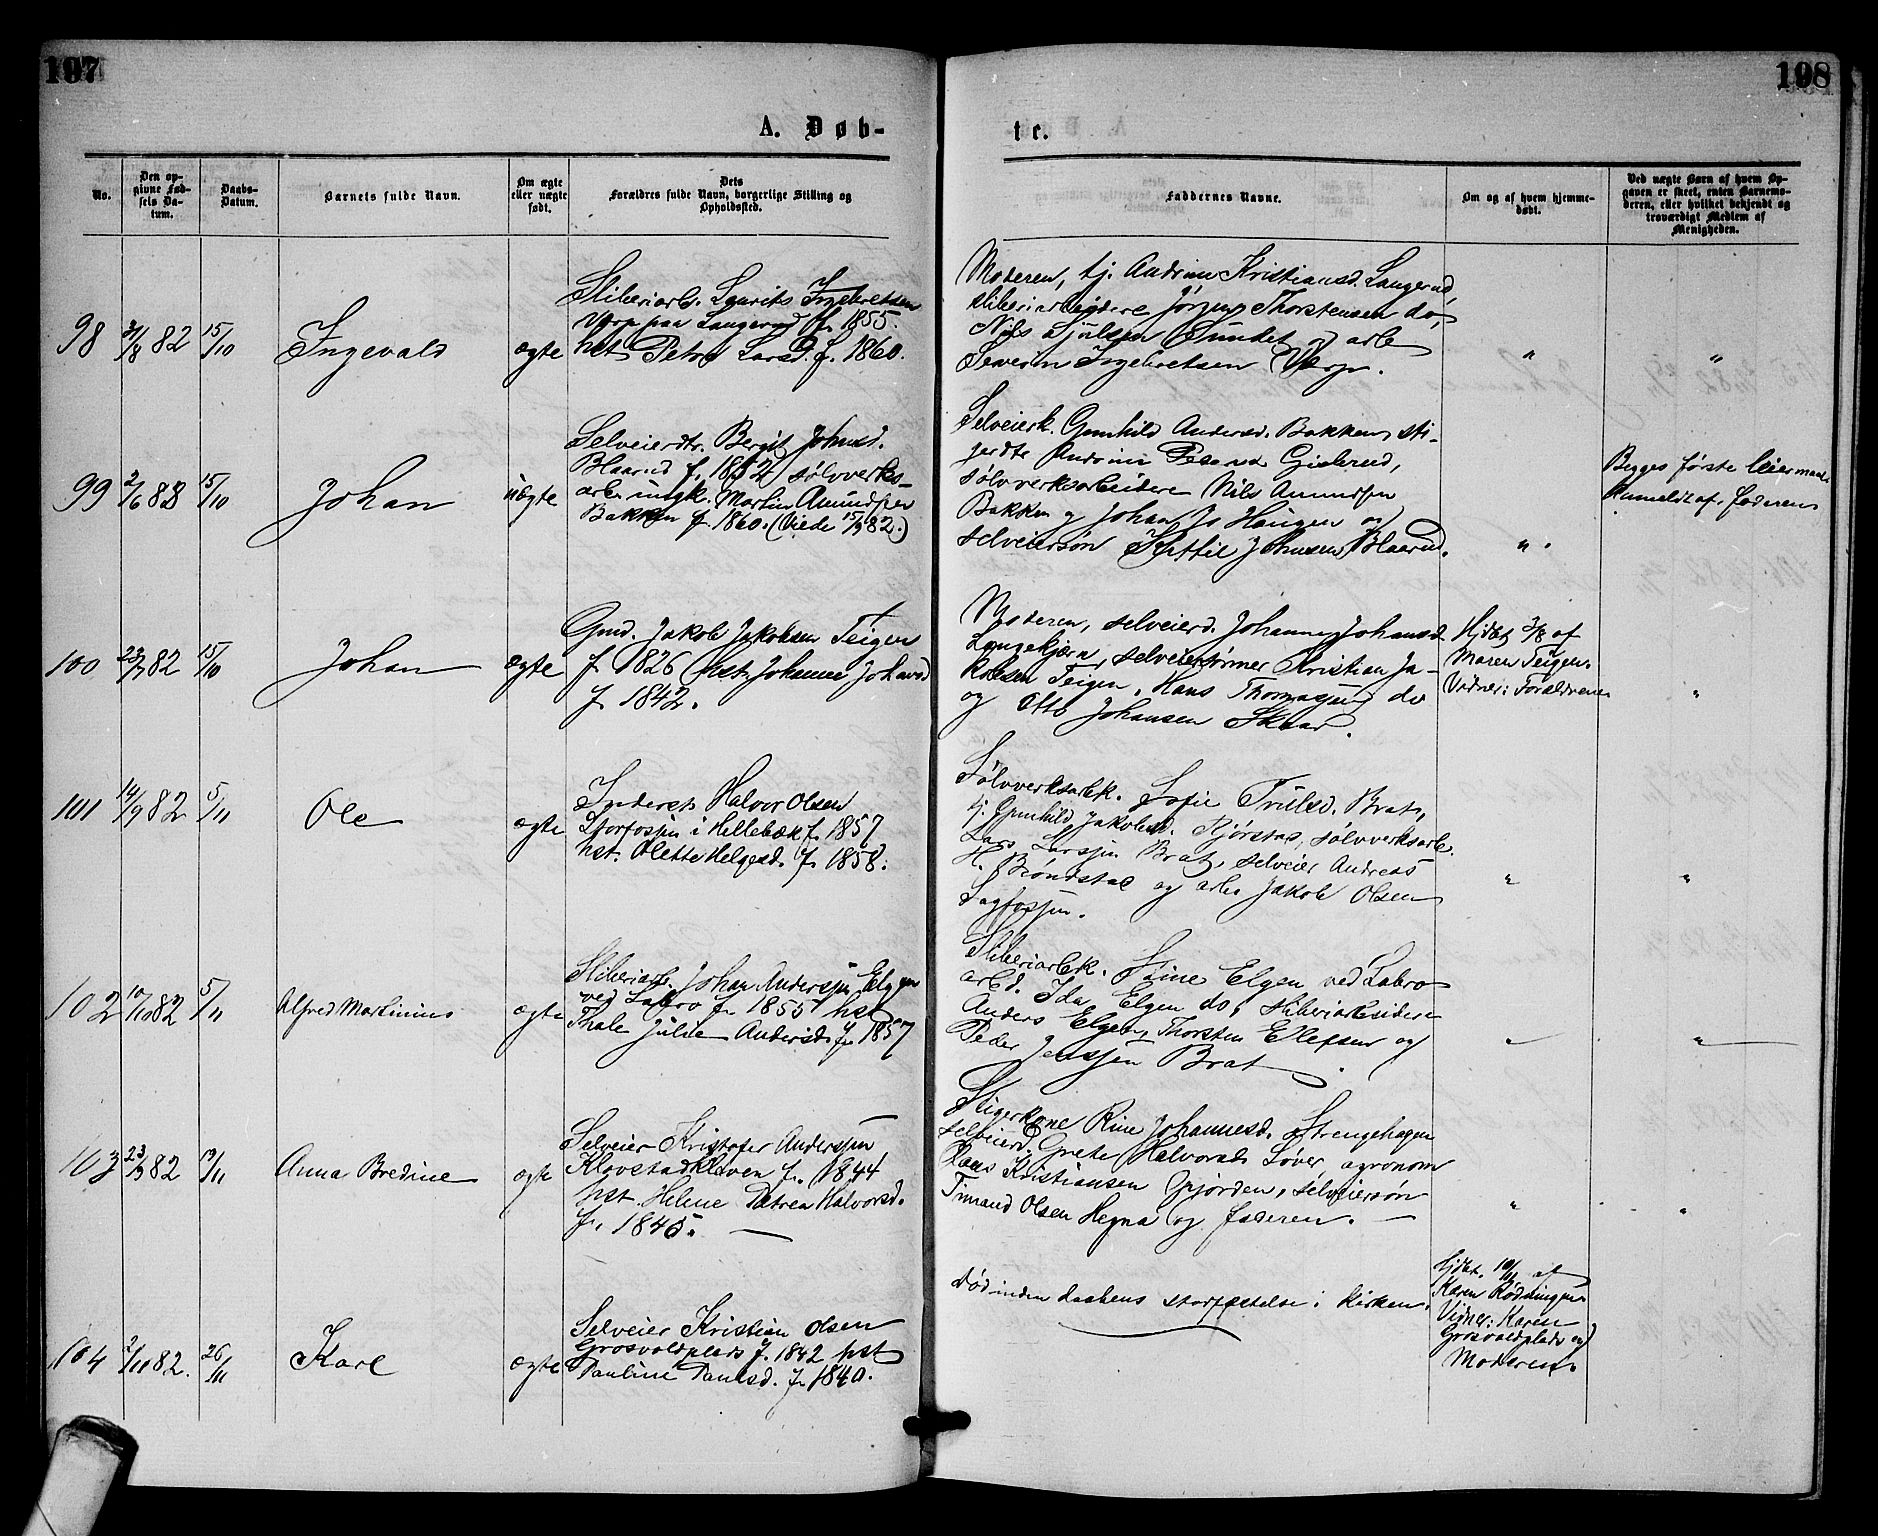 197
198
A. Døb-
te.
No.
Den op-
givne Fød-
sels Da-
tum.
Daabs-
Datum.
Barnets fulde Navn.
Om ægte
eller uægte
født.
Dets
Forældres fulde Navn, borgerlige Stilling og
Opholdssted.
Faddernes Navne.
Om og af hvem hjemme-
døbt.
Ved uægte Børn af hvem Op-
gaven er skeet, enten Barnemo-
deren, eller hvilket bekjendt og
troværdigt Medlem af
Menigheden.
98
82
15/10
Ingevald
ægte
Sliberiarb. Laurits Ingebretsen
Verp paa Langerud f. 1855.
hst Petra Larsd. f. 1860.
Moderen, tj. Andrine Kristiansd. Langerud,
sliberiarbeidere Jørgen Thorstensen do,
Nils Sjulsen Sundet og arb
Severin Ingebretsen Verp.
"
"
99
2/6 88
15/10
Johan
uægte
Selveierdtr. Bergit Johnsd.
Blaarud f. 1852 sølvverks-
arb. ungk. Martin Amundsen
Bakken f. 1860. (Viede 15/9 82.)
Selveierk. Gunhild Andersd. Bakken, sti-
gerdtr Andrine Gislerud,
sølvverksarbeidere Nils Amundsen
Bakken og Johan Js Haugen og
selveiersøn Kittil Johnsen Blaarud.
"
Begges første leiermaal.
Anmeldt af faderen
100
23/7 82
15/10
Johan
ægte
Gmd. Jakob Jakobsen Teigen
f. 1826 hst. Johanne Johansd
f. 1842.
Moderen, selveierd. Johanne Johansd
Langekjærn, selveiersønner Kristian Ja-
kobsen Teigen, Hans Thomassen do
og Otto Johansen Skaar.
Hjdbt 3/8 af
Maren Teigen.
Vidner: Forældrene
"
101
14/9 82
5/11
Ole
ægte
Inderst Halvor Olsen
Storfossen i Hellebæk f. 1857
hst. Olette Helgesd. f. 1858.
Sølvverksarbk. Sofie Trulsd. Brat,
tj. Gunhild Jakobsd. Kjørstad, sølvverksarb.
Lars Larssen Brat, selveier Andreas
H. Brøndstad og arb Jakob Olsen
Sagfossen.
"
"
102
10/10 82
5/11
Alfred Martinius
ægte
Sliberiarb. Johan Anderssen Elgen
ved Labro f. 1855 hst
Thale Julie Andersd. f. 1857
Sliberiarbk. Stine Elgen ved Labro
arbd. Ida Elgen do, sliberiarbeidere
Anders Elgen, Thorsten Ellefsen og
Peder Jenssen Brat.
"
"
103
23/9 82
19/11
Anna Bredine
ægte
Selveier Kristofer Anderssen
Klovstadkleven f. 1844
hst Helene Petrea Halvorsd.
f. 1845.
Stigerkone Rine Johannesd. Strengehagen
selveierd. Grete Halvorsd. Løver, agronom
Hans Kristiansen Gjorden, selveiersøn
Timand Olsen Hegna og faderen.
"
"
104
2/11 82.
26/11
Karl
ægte
Selveier Kristian Olsen
Grosvoldplads f. 1842 hst
Pauline Paulsd. f. 1840.
Død inden daabens stadfæstelse i kirken.
Hjdbt. 10/11 af
Karen Rødningen.
Vidner: Karen
Grosvoldplads og
Moderen.